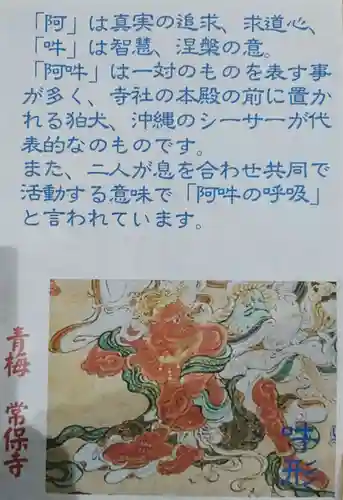 「阿」は真実の追求、求道心、
「吽」は智慧、涅槃の意。
「阿吽」は一対のものを表す事
が多く、寺社の本殿の前に置か
れる狛犬、沖縄のシーサーが代
表的なのものです。
また、二人が息を合わせ共同で
活動する意味で「阿吽の呼吸」
と言われています。
青梅 常保寺
吽
形